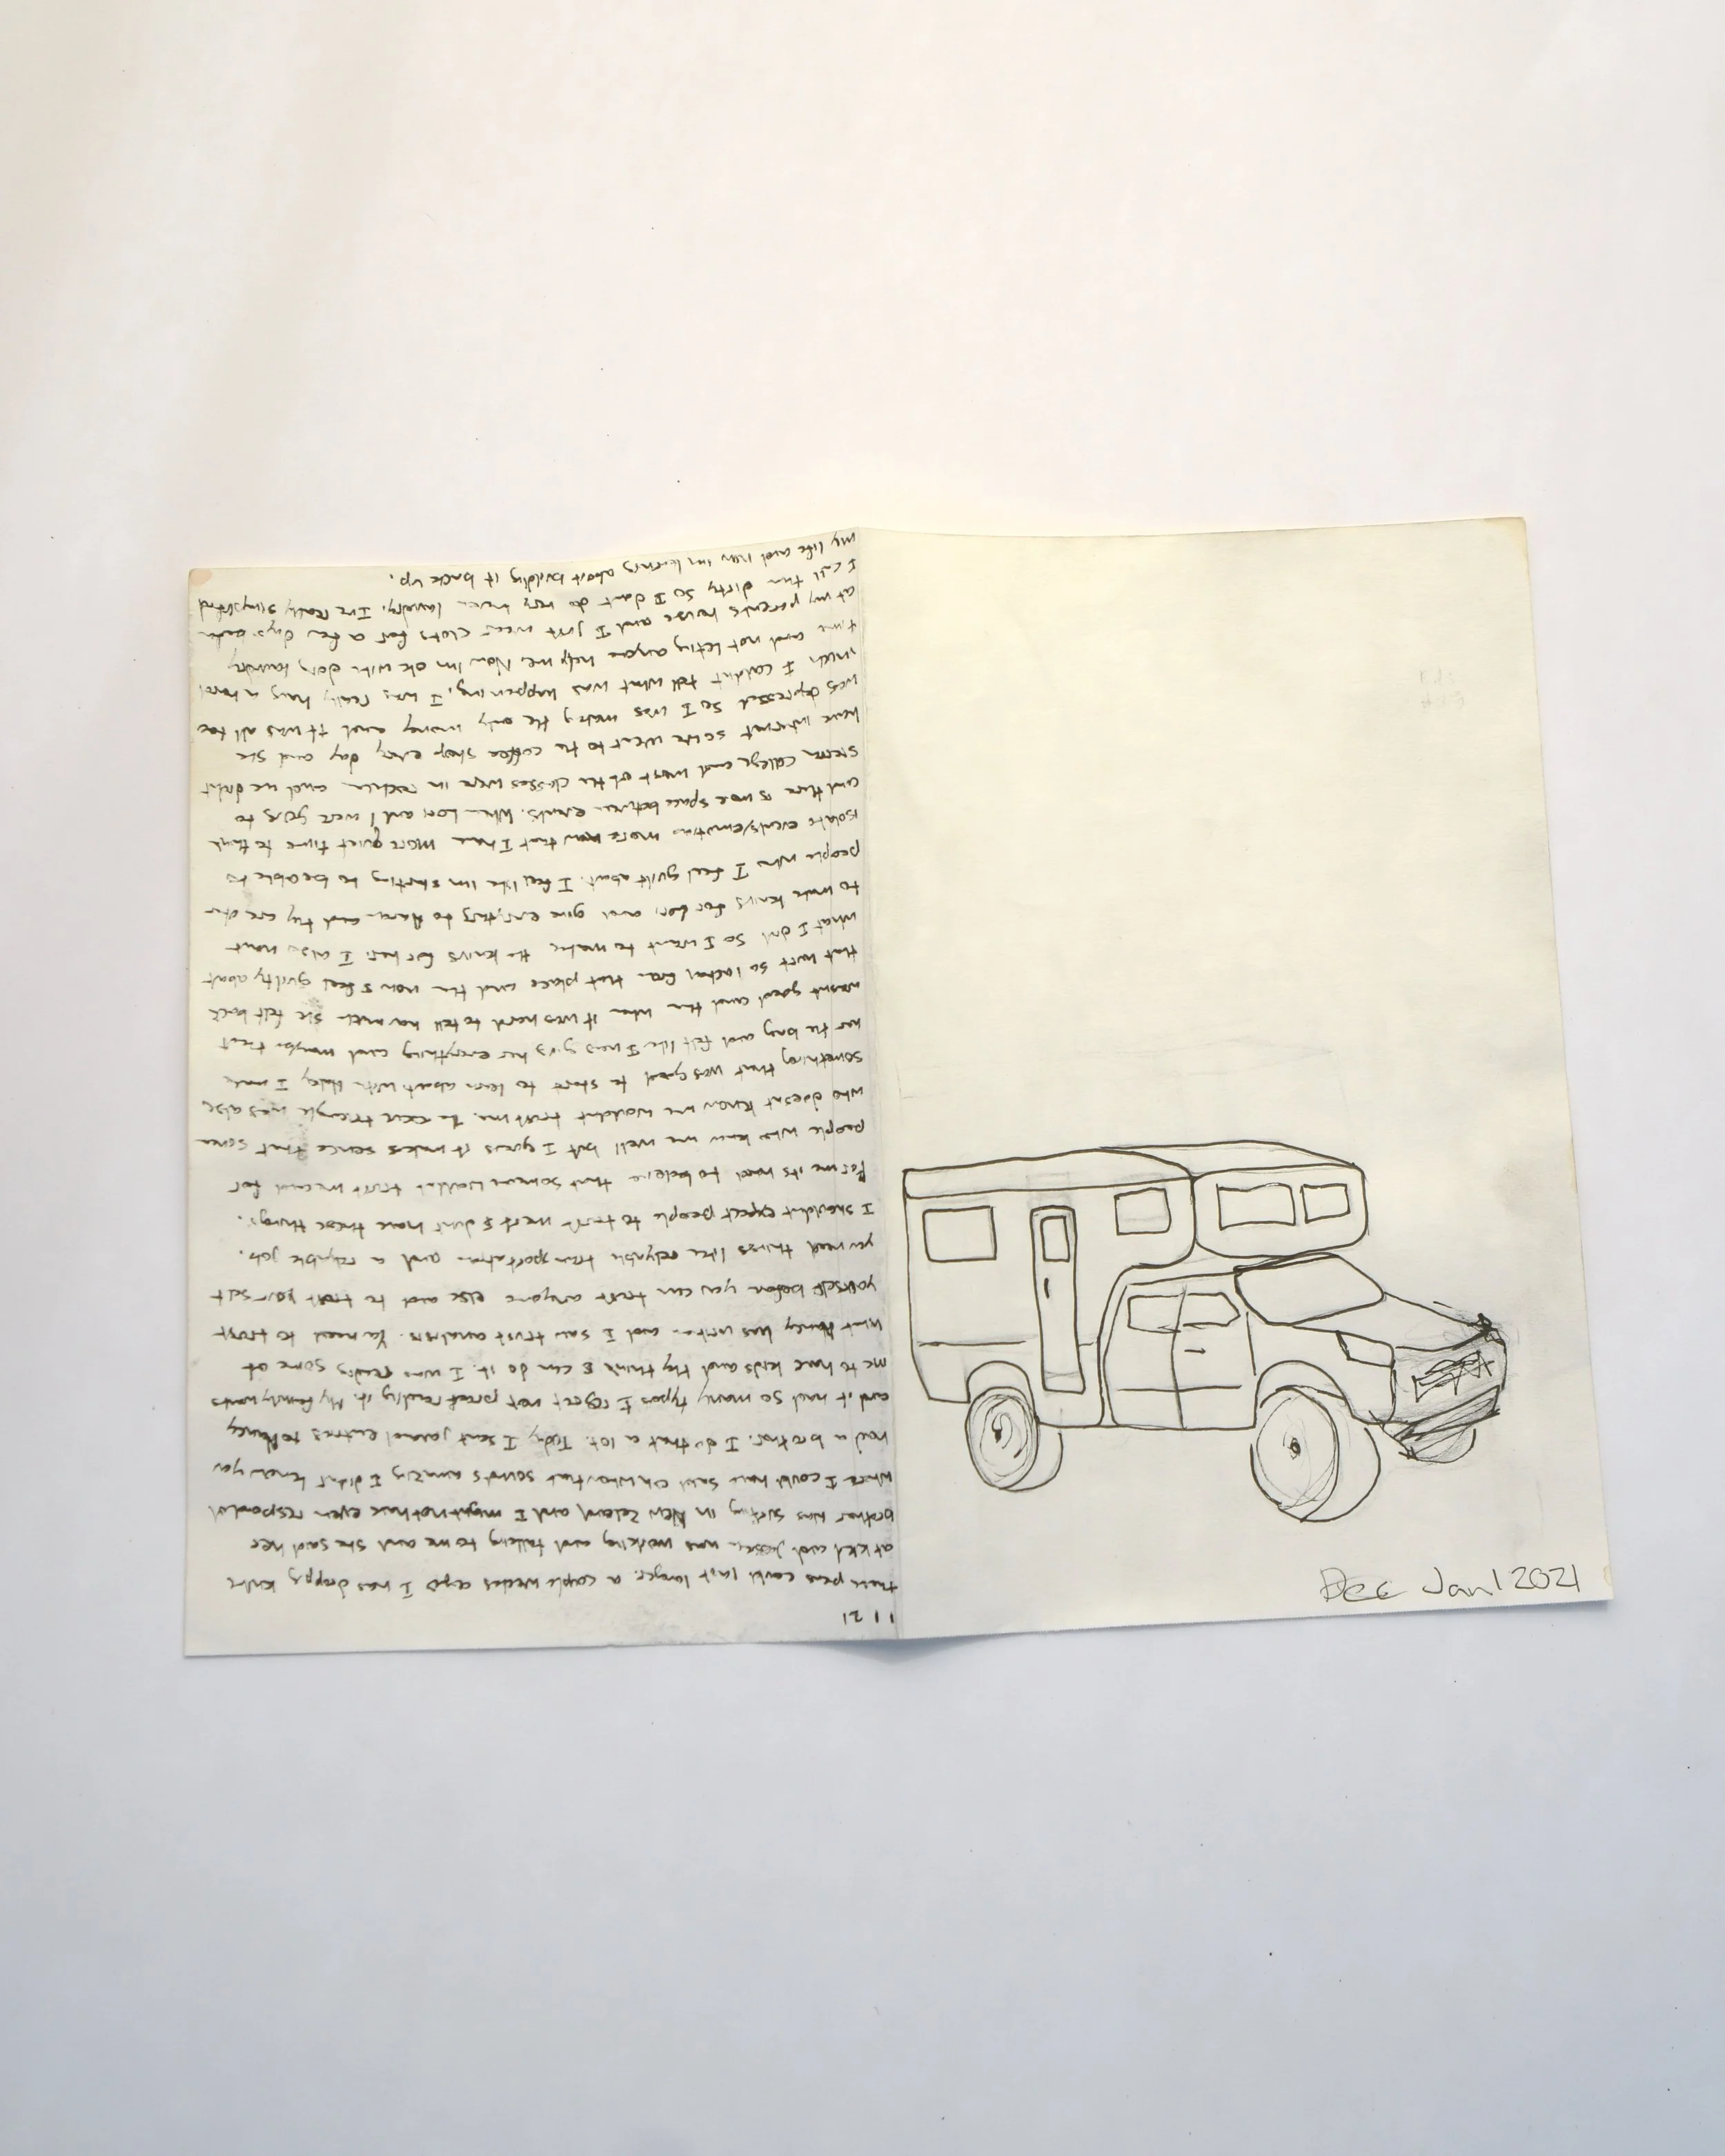 1 1 21
these pens could last longer. a couple weeks ago I was dropping
at and Jessica was working and talking to me and she said her
brother was surfing in New Zeland and I might not have even responded
where I could have said oh wow that sounds amazing I didnt know you
had a brother. I do that a lot. Today I sent journal entries to Nancy
and it had so many typos I regret not proof reading it. My family wants
me to have kids and they think I can do it. I was reading some of
what Nancy has written and I saw trust analisis. You need to trust
yourself before you can trust anyone else and to trust your self
you need things like relyable transportation and a relyable job.
I shouldnt expect people to trust me if I dont have these things.
For me its hard to beleive that someone wouldnt trust me and for
people who know me well but I guess it makes sence that someone
who doesnt know me wouldnt trust me. The triangle was also
something that was good to start to learn about with Haley I made
her the bag and felt like I was giving her everything and maybe that
wasnt good and then when it was hard to tell how much she felt back
that hurt so I acted from that place and then now I feel guilty about
what I did so I want to make the knifs for her. I also want
to make knifs for Lori and give everything to Karen and they are other
people who I feel guilt about. I feel like im starting to be able to
isolate events/emotions more now that I have more quiet time to think
and there is more space between events. When Lori and I were going to
sierra college and most of the classes were in rocklin and we didnt
have internet so we went to the coffee shop every day and she
was depressed so I was making the only money and it was all too
much I couldnt tell what was happening. I was really having a hard
time and not letting anyone help me. Now im ok with doing laundry
at my parents house and I just wear for a few days
I dirty so I dont do very much laundry. I've really simplified
my life and now im learning about building it back up.
Dec Jan 1 2021